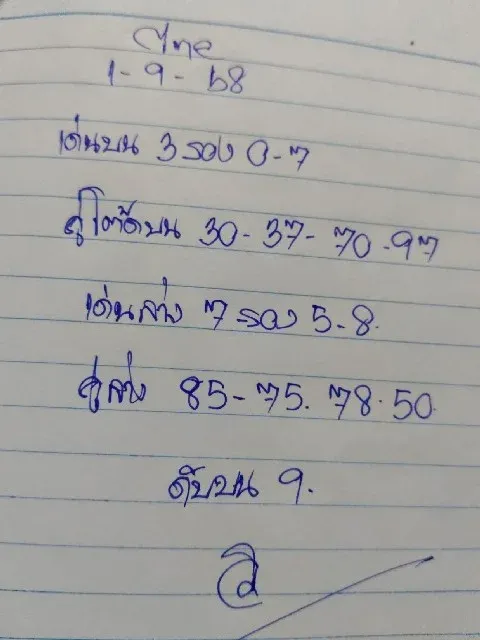 ไทย
1-9-68
เด่นบน 3 รอง 0-7
คู่โต๊ดบน 30-37-70-97
เด่นล่าง 7 รอง 5-8
คู่ล่าง 85-75.78.50
ดับบน 9.